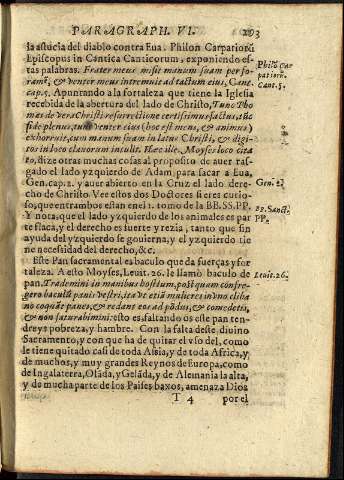 PARAGRAPH. VI. 293
la astucia del diablo contra Eua. Philon Carpatiorũ
Episcopus in Cantica Canticorum, exponiendo es-
tas palabras. Frater meus misit manum suam per fo-
ramẽ, & venter meus intremuit ad tactum eius, Canc.
cap. 5. Apuntando a la fortaleza que tiene la Iglesia
recebida de la abertura del lado de Christo, Tunc Tho
mas de vera Christi resurrectione certissimus factus, ac
fide plenus, tum venter eius (hoc est mens, & animus)
exhorruit, cum manum suam in latus Christi, & digi-
tos in loco clauorum insulit. Hæc ille. Moyses loco cita
to, dize otras muchas cosas al proposito de auer ras-
gado el lado yzquierdo de Adam, para sacar a Eua,
Gen. cap. 2. y auer abierto en la Cruz el lado dere-
cho de Christo. Vee estos dos Doctores si eres curio-
so, que entrambos estan en el 1. tomo de la BB. SS. PP.
Y nota, que el lado yzquierdo de los animales es par
te flaca, y el derecho es fuerte y rezia, tanto que sin
ayuda del yzquierdo se gouierna, y el yzquierdo tie
ne necessidad del derecho, &c.
Este Pan sacramental es baculo que da fuerças y for
taleza. A esto Moyses, Leuit. 26. le llamò baculo de
pan. Trademini in manibus hostium, postquam confre-
gero baculũ panis vestri, ita vt etiã mulieres in vno cliba
no coquãt panes, & reddant eos ad põdus, & comedetis,
& non saturabimini: esto es, faltandoos este pan ten-
dreys pobreza, y hambre. Con la falta deste diuino
Sacramento, y con que ha de quitar el vso del, como
le tiene quitado casi de toda Assia, y de toda Africa, y
de muchos, y muy grandes Reynos de Europa, como
de Ingalaterra, Olãda, y Gelãda, y de Alemania la alta,
y de mucha parte de los Paises baxos, amenaza Dios
T 4 por el
Philõ Car
patiorũ.
Cant. 5.
Gen. 2.
BB. Sanct.
PP.
Leuit. 26.